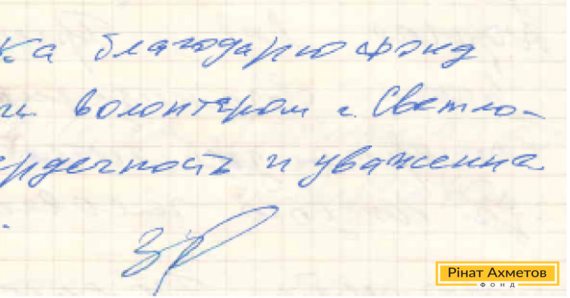 ка благодарю фонд
и волонтером г. Светло-
рдечность и уважение
Рінат Ахметов
ФОНД